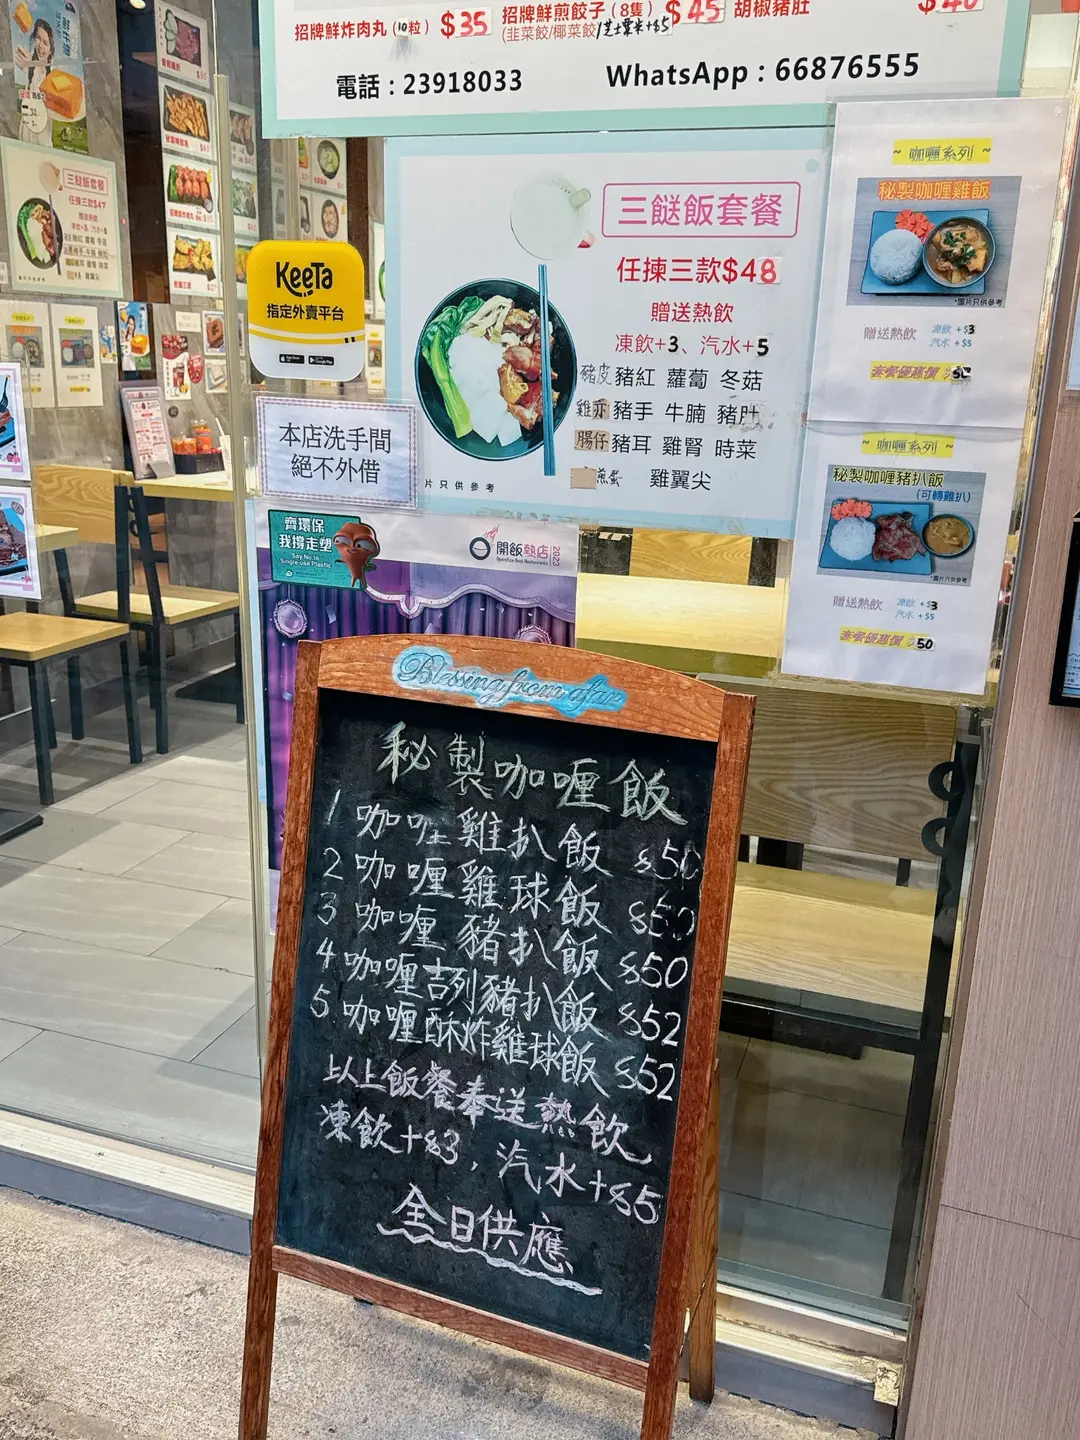 招牌鮮炸肉丸(10粒) $35
招牌鮮煎餃子(8隻) $45
(韭菜餃/椰菜餃/芝士粟米+$5
胡椒豬肚
電話:23918033
WhatsApp:66876555
三餸飯套餐
任揀三款$48
贈送熱飲
凍飲+3、汽水+5
豬皮 豬紅 蘿蔔 冬菇
雞亦 豬手 牛腩 豬肚
腸仔 豬耳 雞腎 時菜
煎蛋 雞翼尖
片只供參考
~ 咖喱系列 ~
秘製咖喱雞飯
*圖片只供參考
贈送熱飲
凍飲 +$3
汽水 +$5
套餐優惠價
~ 咖喱系列 ~
秘製咖喱豬扒飯
(可轉雞扒)
*圖片只供參考
贈送熱飲
凍飲 +$3
汽水 +$5
套餐優惠價 $50
KeeTa
指定外賣平台
本店洗手間
絕不外借
三餸飯套餐
任揀三款$47
贈送熱飲
齊環保
我撐走塑
Say No to
Single-use Plastic
開飯熱店
OpenRice Best Restaurants
2023
Blessing from afar
秘製咖喱飯
1 咖喱雞扒飯 $50
2 咖喱雞球飯 $50
3 咖喱豬扒飯 $50
4 咖喱吉列豬扒飯 $52
5 咖喱酥炸雞球飯 $52
以上飯餐奉送熱飲
凍飲+$3,汽水+$5
全日供應